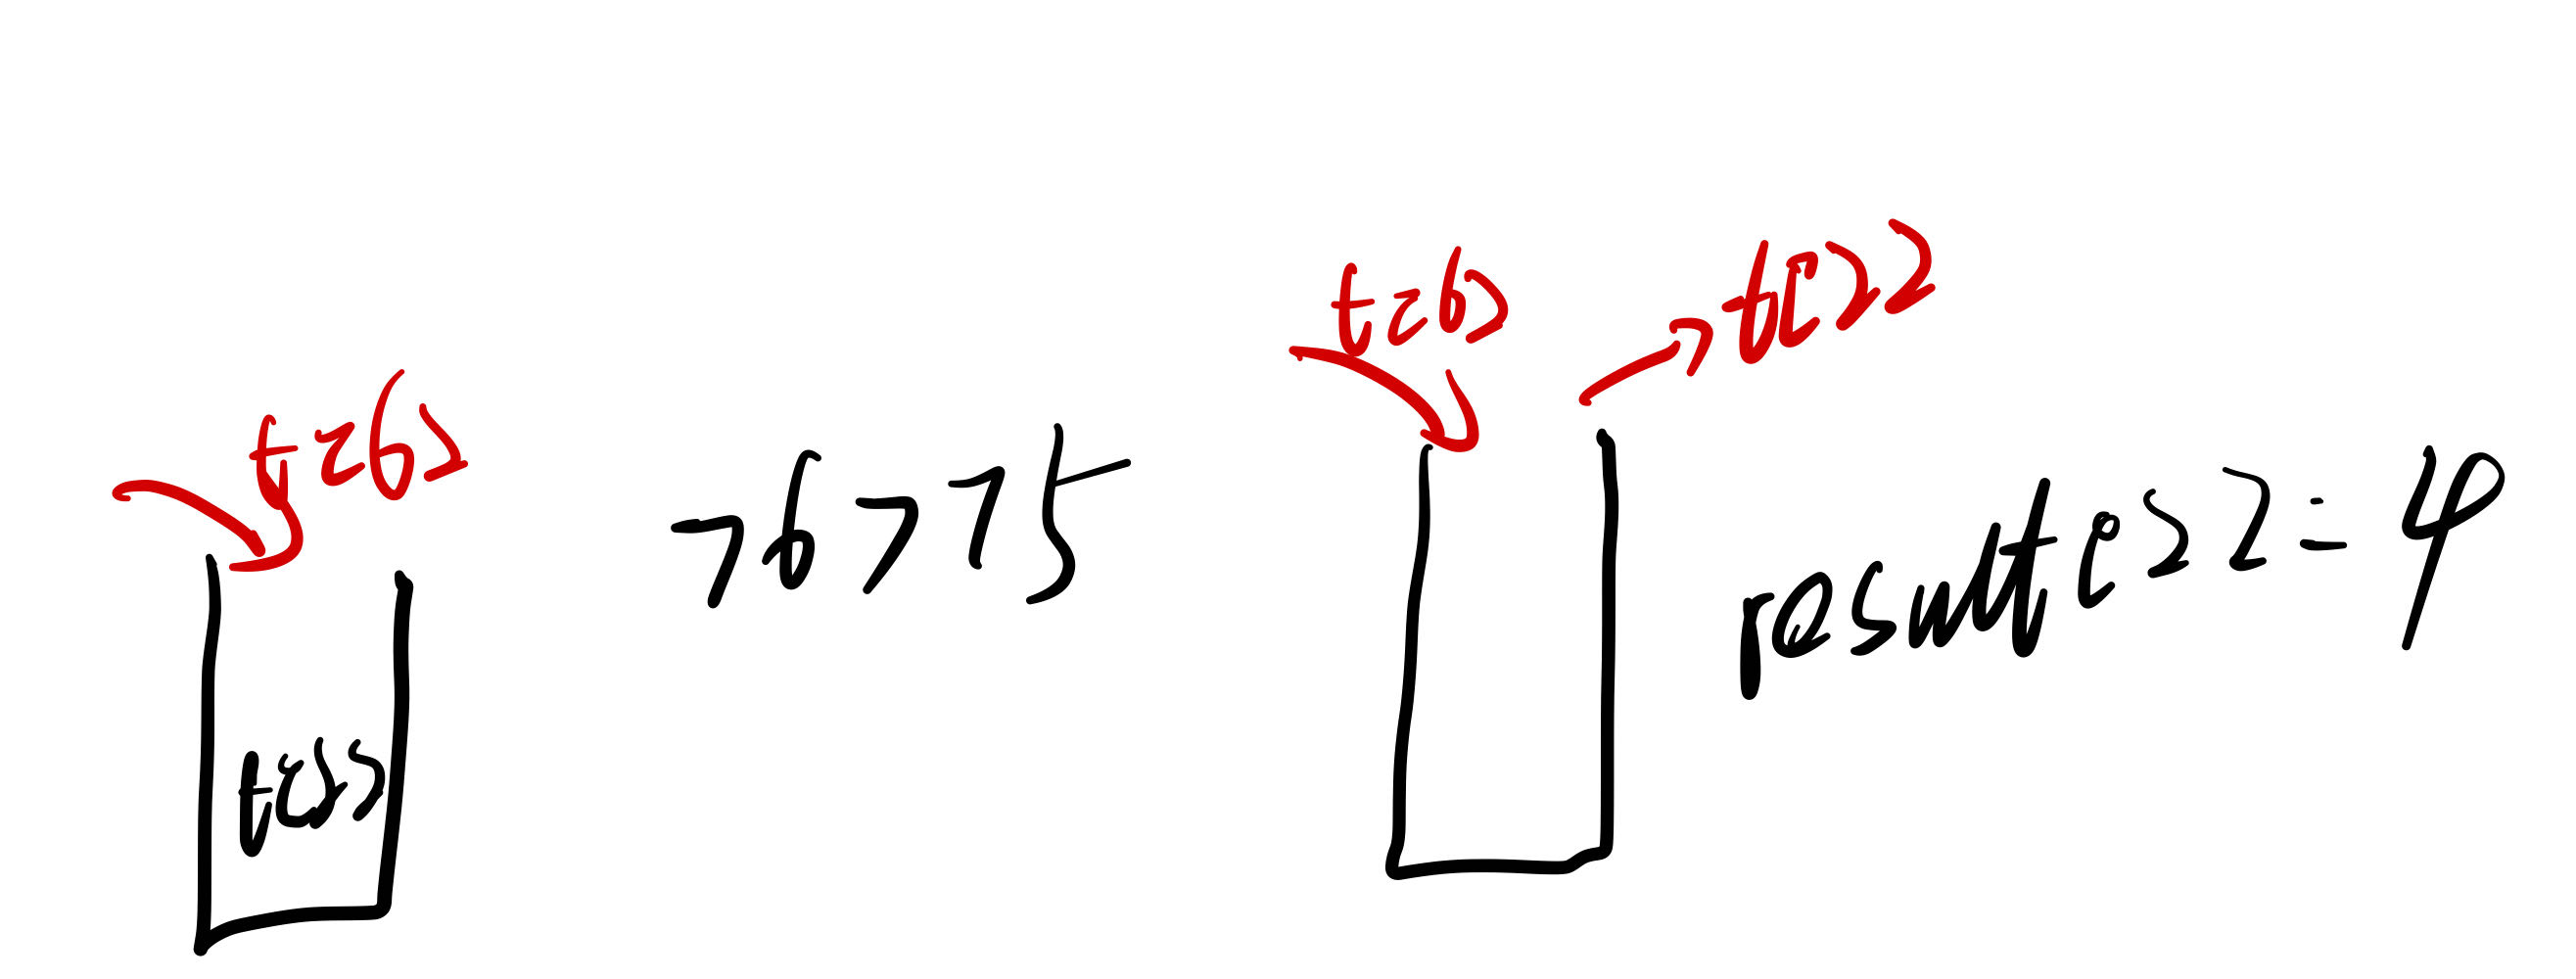 t[6]
t[2]
76>75
t[6]
t[2]
result[2]=4